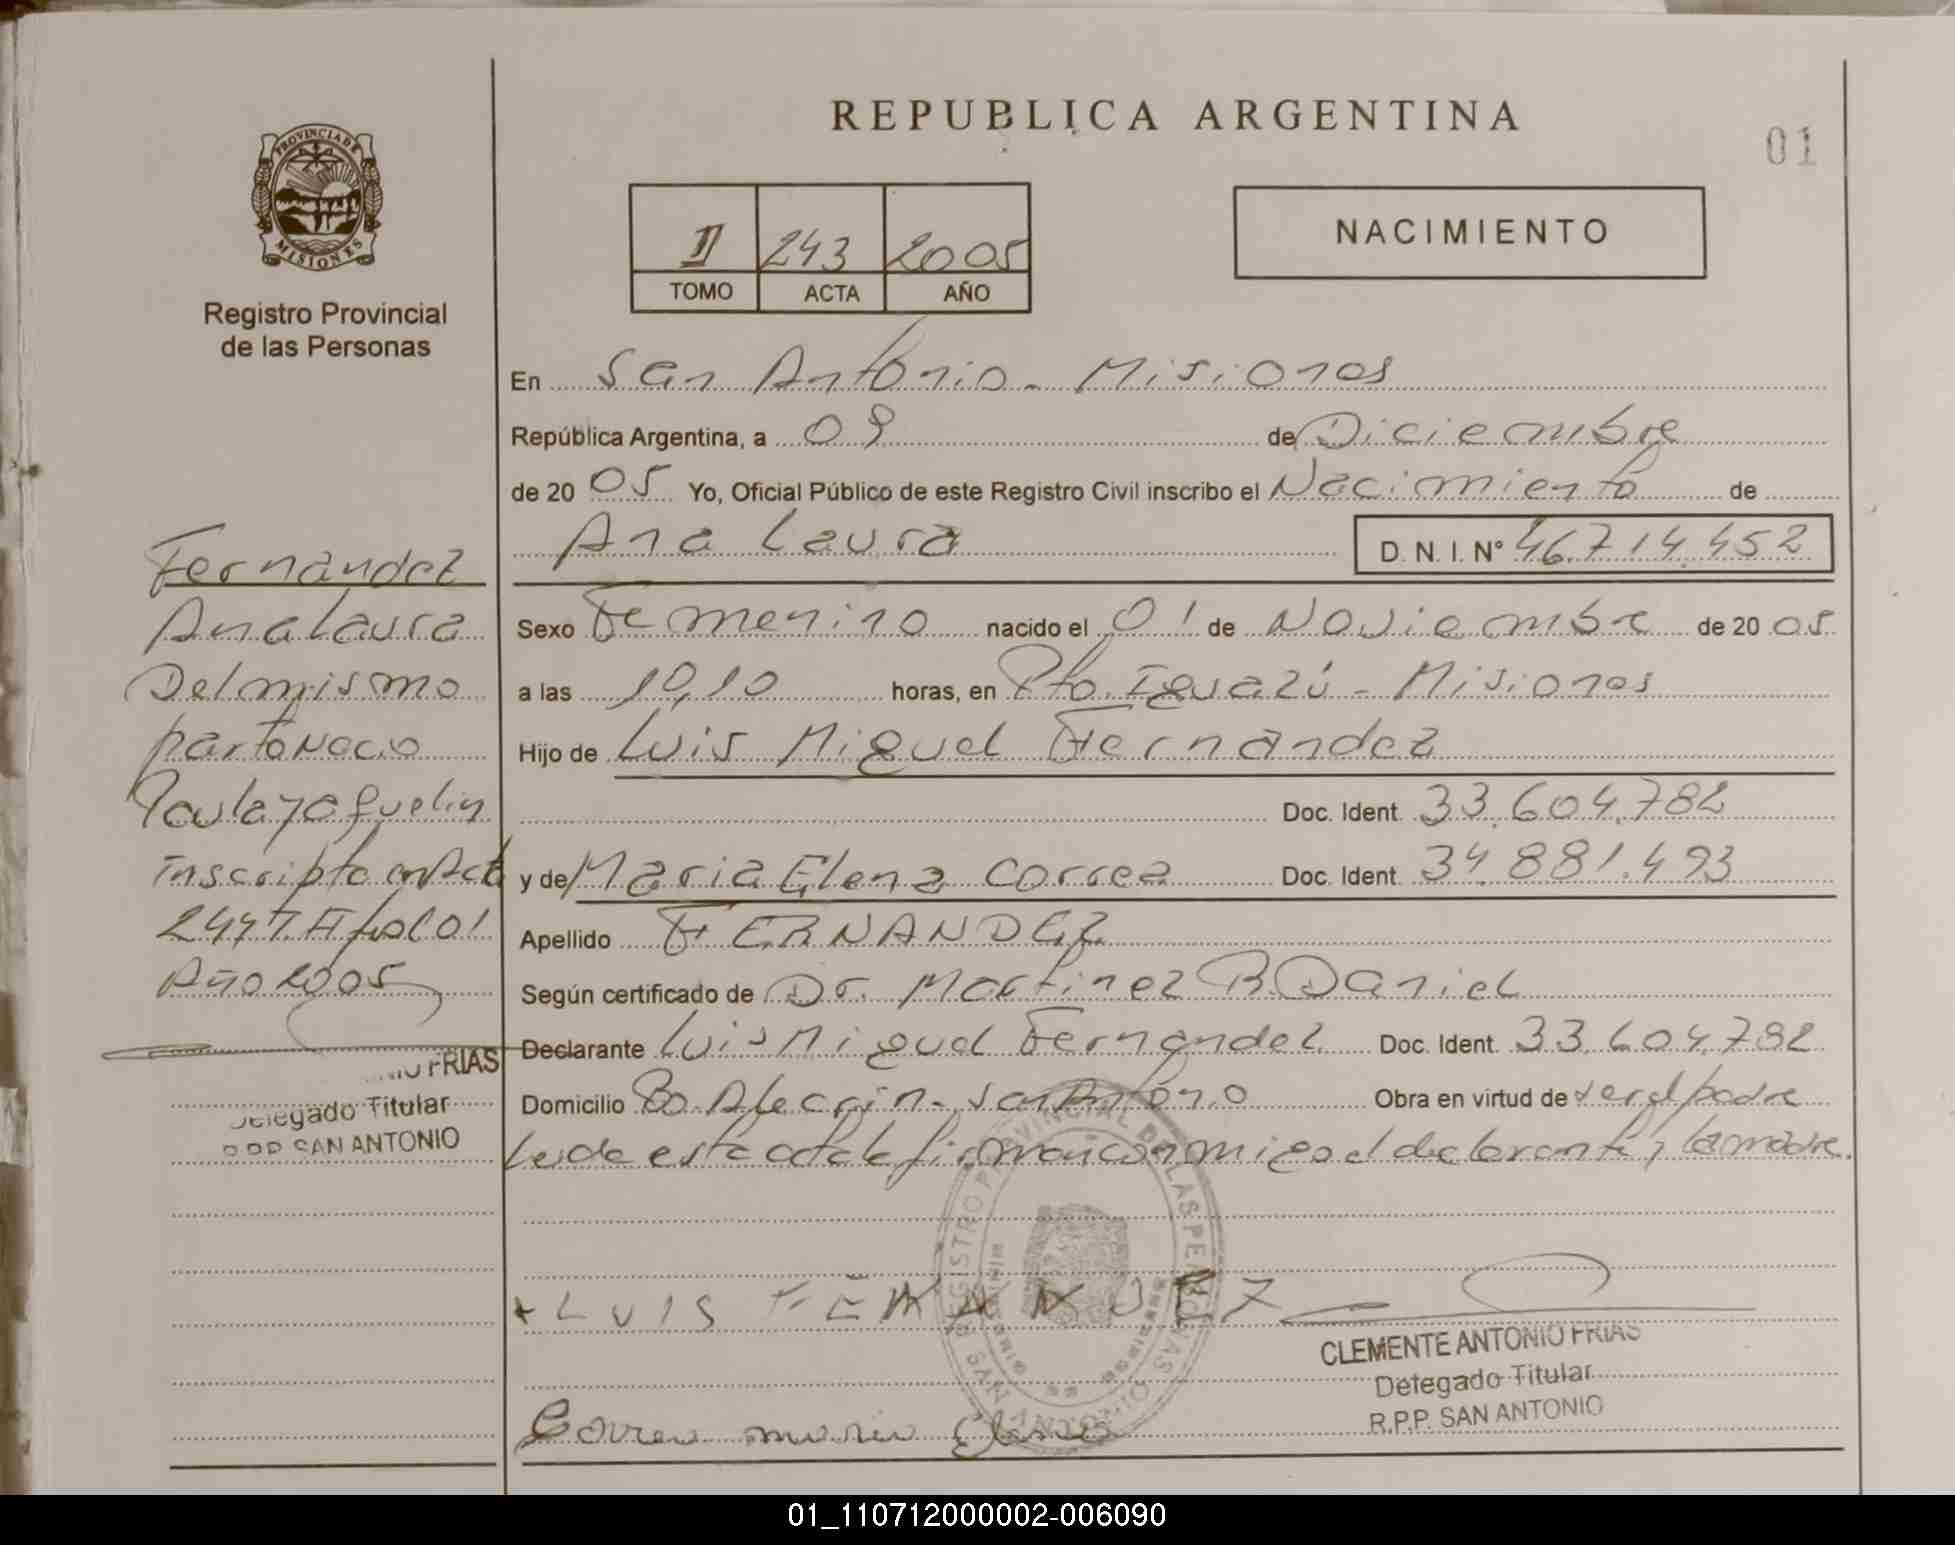 REPUBLICA ARGENTINA
01
PROVINCIA DE
MISIONES
Registro Provincial
de las Personas
II 243 2005
TOMO ACTA AÑO
NACIMIENTO
En San Antonio - Misiones
República Argentina, a 09 de Diciembre
de 20 05 Yo, Oficial Público de este Registro Civil inscribo el Nacimiento de
Ana Laura D. N. I. N° 46.714.452
Sexo Femenino nacido el 01 de Noviembre de 20 05
a las 10,10 horas, en Pto. Iguazú - Misiones
Hijo de Luis Miguel Fernandez
Doc. Ident. 33.604.782
y de Maria Elena Correa Doc. Ident. 34.881.493
Apellido FERNANDEZ
Según certificado de Dr. Martinez R. Daniel
Declarante Luis Miguel Fernandez Doc. Ident. 33.604.782
Domicilio Bo Alecrin - San Antonio Obra en virtud de ser el padre
Leida esta acta la firman conmigo el declarante y la madre.
Fernandez
Ana Laura
Del mismo
parto nacio
Paula Yaquelin
inscripta en Acta
244 T. II folio 01
Año 2005
FRIAS
Delegado Titular
R.P.P. SAN ANTONIO
REGISTRO PROVINCIAL DE LAS PERSONAS
SAN ANTONIO
LUIS FERNANDEZ
CLEMENTE ANTONIO FRIAS
Delegado Titular
R.P.P. SAN ANTONIO
Correa maria Elena
01_110712000002-006090